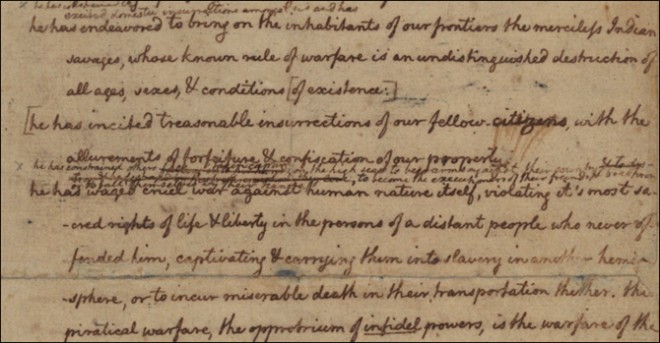 excited domestic insurrections amongst us and has
he has endeavored to bring on the inhabitants of our frontiers the merciless Indian
savages, whose known rule of warfare is an undistinguished destruction of
all ages, sexes, & conditions [of existence:]
[he has incited treasonable insurrections of our fellow-citizens, with the
allurements of forfeiture & confiscation of our property.
x he has constrained others
on the high seas to bear arms against their country
to become the executioners of their friends & brethren
he has waged cruel war against human nature itself, violating it's most sa-
-cred rights of life & liberty in the persons of a distant people who never of-
fended him, captivating & carrying them into slavery in another hemi-
-sphere, or to incur miserable death in their transportation thither. this
piratical warfare, the opprobrium of infidel powers, is the warfare of the